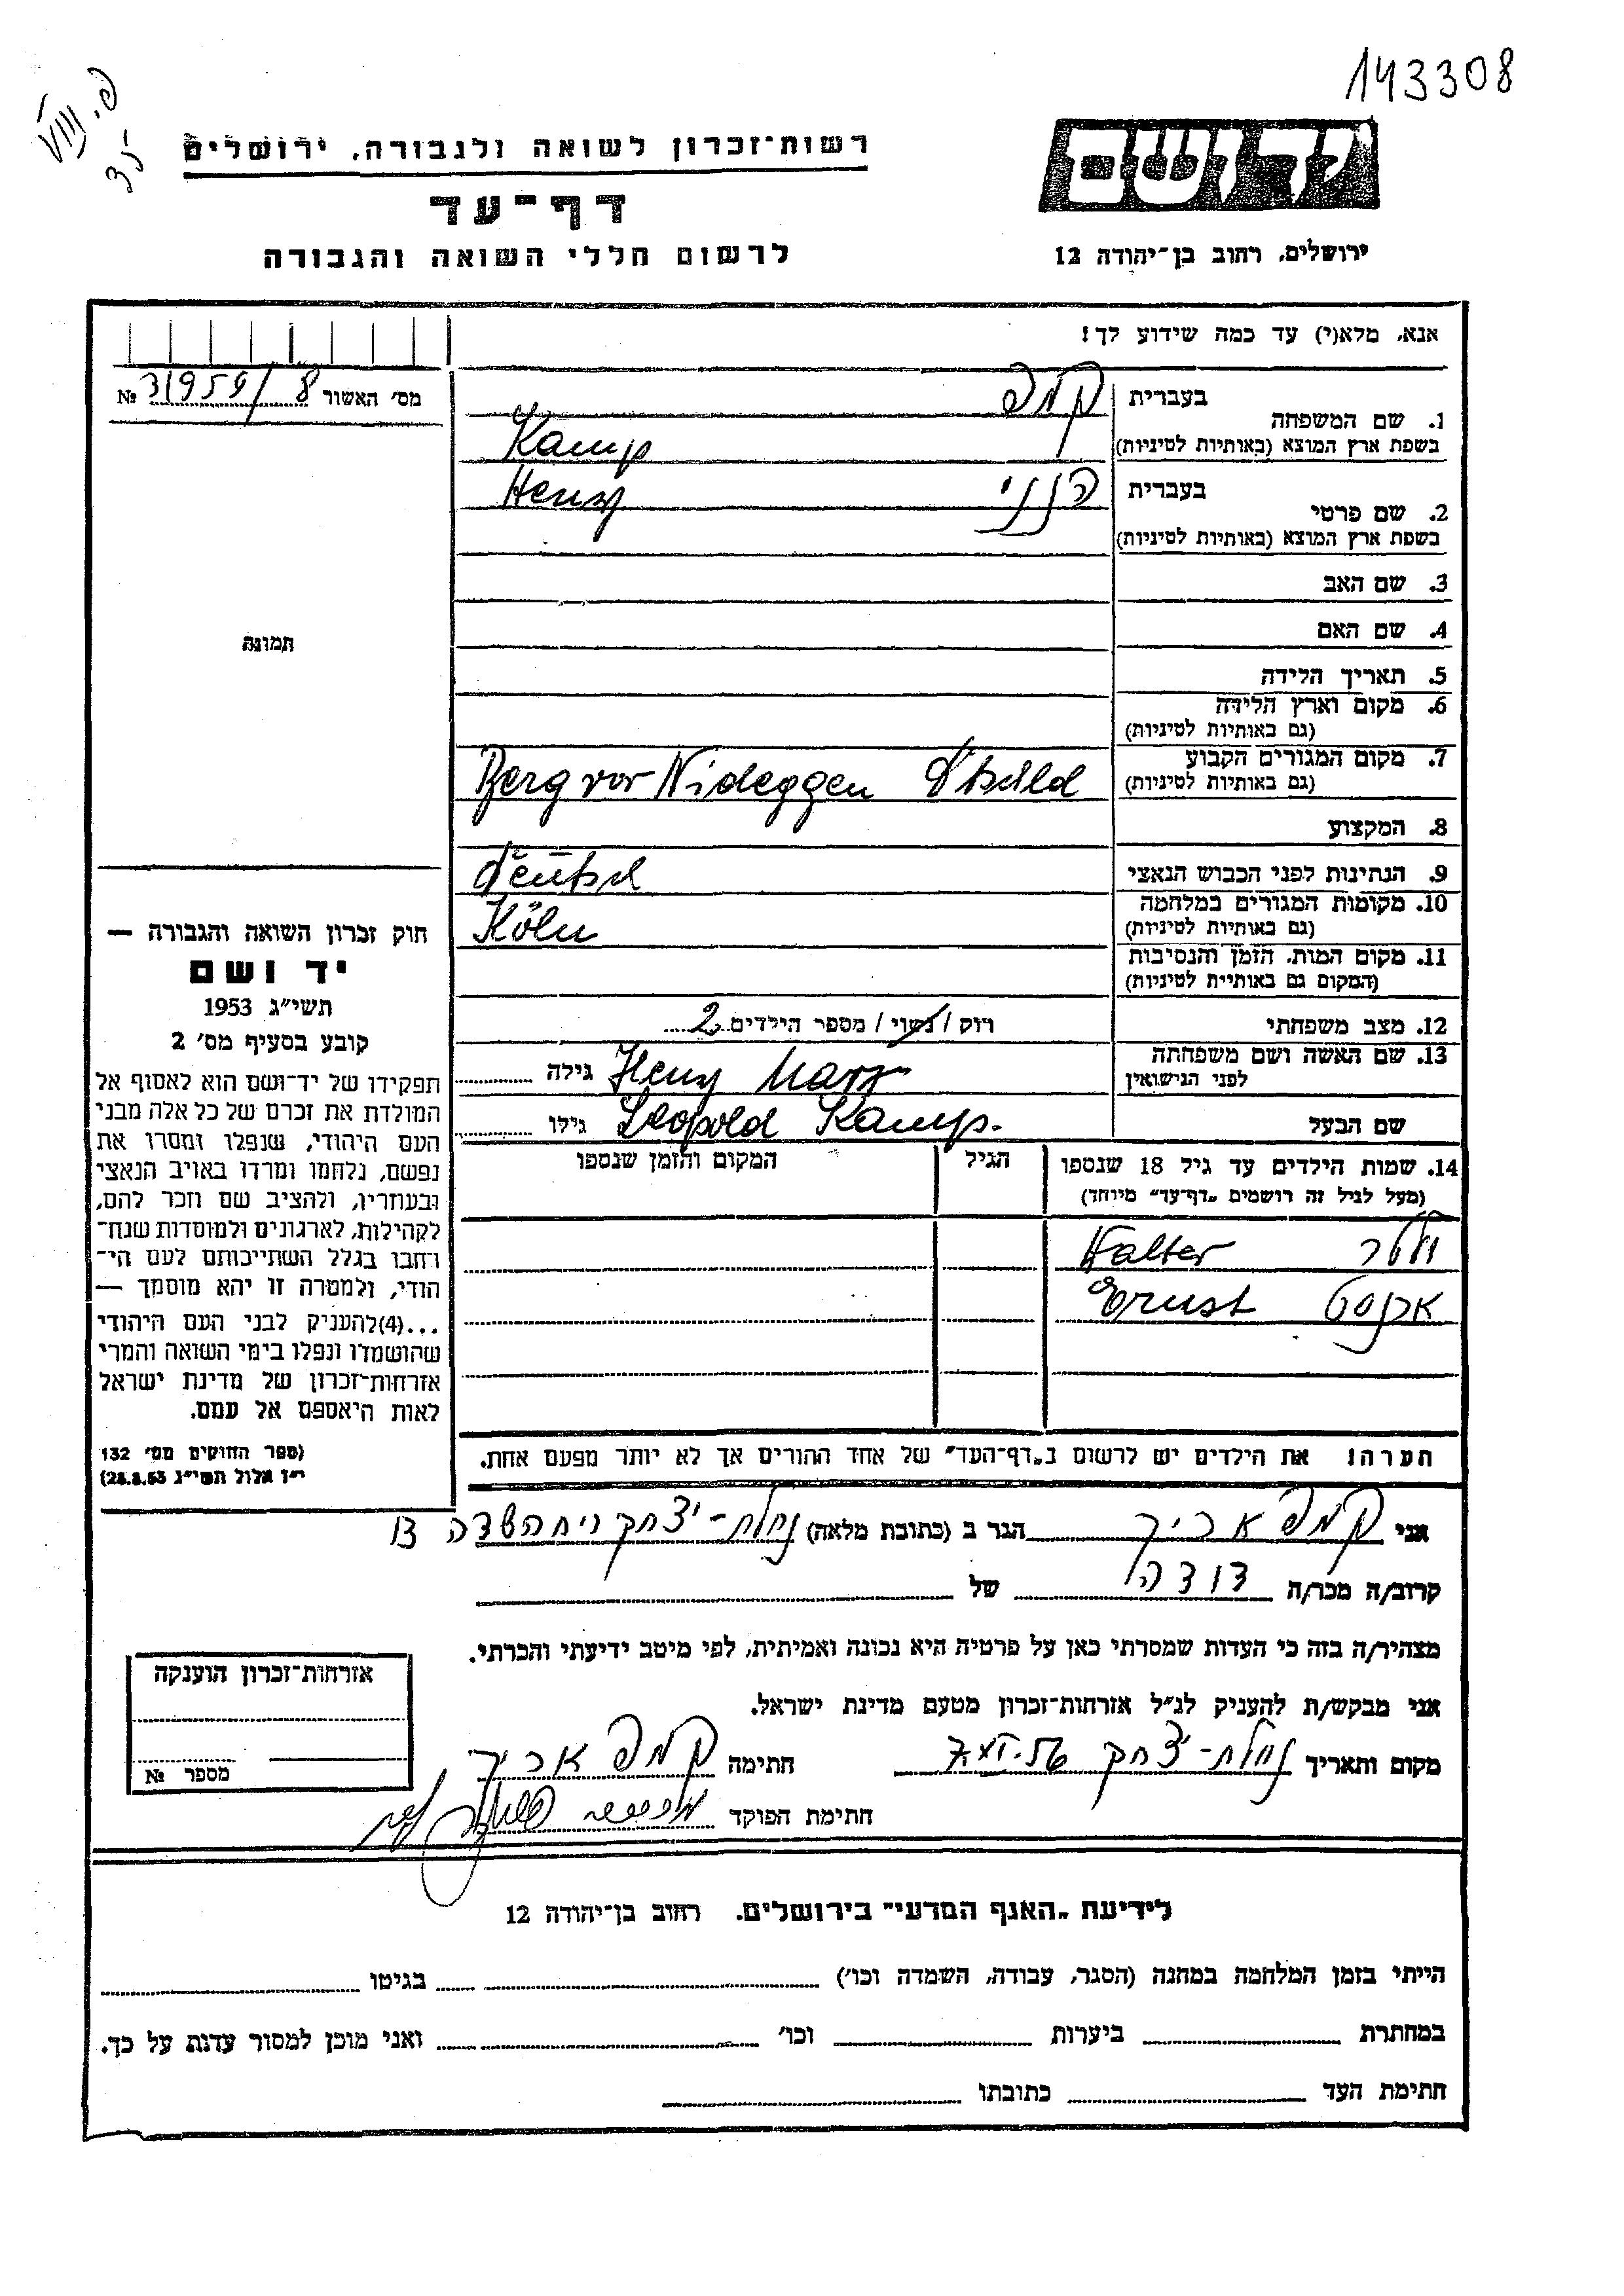 143308
רשות־זכרון לשואה ולגבורה, ירושלים
דף־עד
לרשום חללי השואה והגבורה
יד ושם
ירושלים, רחוב בן־יהודה 12
אנא, מלא(י) עד כמה שידוע לך!
מס׳ האשור 31959/8 №
1. שם המשפחה
בעברית
קמפ
בשפת ארץ המוצא (באותיות לטיניות)
Kamp
2. שם פרטי
בעברית
הנני
Henny
בשפת ארץ המוצא (באותיות לטיניות)
3. שם האב
4. שם האם
תמונה
5. תאריך הלידה
6. מקום וארץ הלידה
(גם באותיות לטיניות)
7. מקום המגורים הקבוע
(גם באותיות לטיניות)
Berg vor Nideggen
8. המקצוע
9. הנתינות לפני הכבוש הנאצי
deutsch
10. מקומות המגורים במלחמה
(גם באותיות לטיניות)
Köln
11. מקום המות, הזמן והנסיבות
(המקום גם באותיות לטיניות)
12. מצב משפחתי
רוק / נשוי / מספר הילדים 2
13. שם האשה ושם משפחתה
לפני הנישואין
Henny Marx גילה
שם הבעל
Leopold Kamp. גילו
14. שמות הילדים עד גיל 18 שנספו
(מעל לגיל זה רושמים „דף־עד״ מיוחד)
הגיל
המקום והזמן שנספו
ולטר Walter
ארנסט Ernst
חוק זכרון השואה והגבורה —
יד ושם
תשי״ג 1953
קובע בסעיף מס׳ 2
תפקידו של יד־ושם הוא לאסוף אל
המולדת את זכרם של כל אלה מבני
העם היהודי, שנפלו ומסרו את
נפשם, נלחמו ומרדו באויב הנאצי
ובעוזריו, ולהציב שם וזכר להם,
לקהילות, לארגונים ולמוסדות שנח־
רבו בגלל השתייכותם לעם הי־
הודי, ולמטרה זו יהא מוסמך —
...(4) להעניק לבני העם היהודי
שהושמדו ונפלו בימי השואה והמרי
אזרחות־זכרון של מדינת ישראל
לאות היאספם אל עמם.
(ספר החוקים מס׳ 132
י״ז אלול תשי״ג 28.8.53)
הערה! את הילדים יש לרשום ב„דף־העד״ של אחד ההורים אך לא יותר מפעם אחת.
אני קמפ אריך הגר ב (כתובת מלאה) נחלת-יצחק
קרוב/ה מכר/ה דודה של
מצהיר/ה בזה כי העדות שמסרתי כאן על פרטיה היא נכונה ואמיתית, לפי מיטב ידיעתי והכרתי.
אני מבקש/ת להעניק לנ״ל אזרחות־זכרון מטעם מדינת ישראל.
מקום ותאריך נחלת-יצחק חתימה קמפ אריך
חתימת הפוקד
אזרחות־זכרון הוענקה
מספר №
לידיעת „האגף המדעי״ בירושלים, רחוב בן־יהודה 12
הייתי בזמן המלחמה במחנה (הסגר, עבודה, השמדה וכו׳) בגיטו
במחתרת ביערות וכו׳ ואני מוכן למסור עדות על כך.
חתימת העד כתובתו